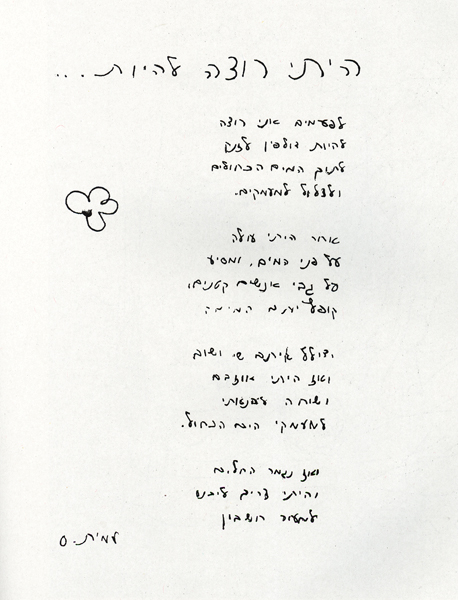 הייתי רוצה להיות...
לפעמים אני רוצה
להיות דולפין לזנק
לתוך המים הכחולים
ולצלול למעמקים.
אחר הייתי עולה
על פני המים, ומסיע
על גבי אנשים קטנים,
קופץ איתם המימה
וצולל איתם שוב ושוב
ואז הייתי עוזבם
ושוחה
למעמקי הים הכחול.
ואז נגמר החלום
והייתי צריך
לשעור חשבון
עמית. ס